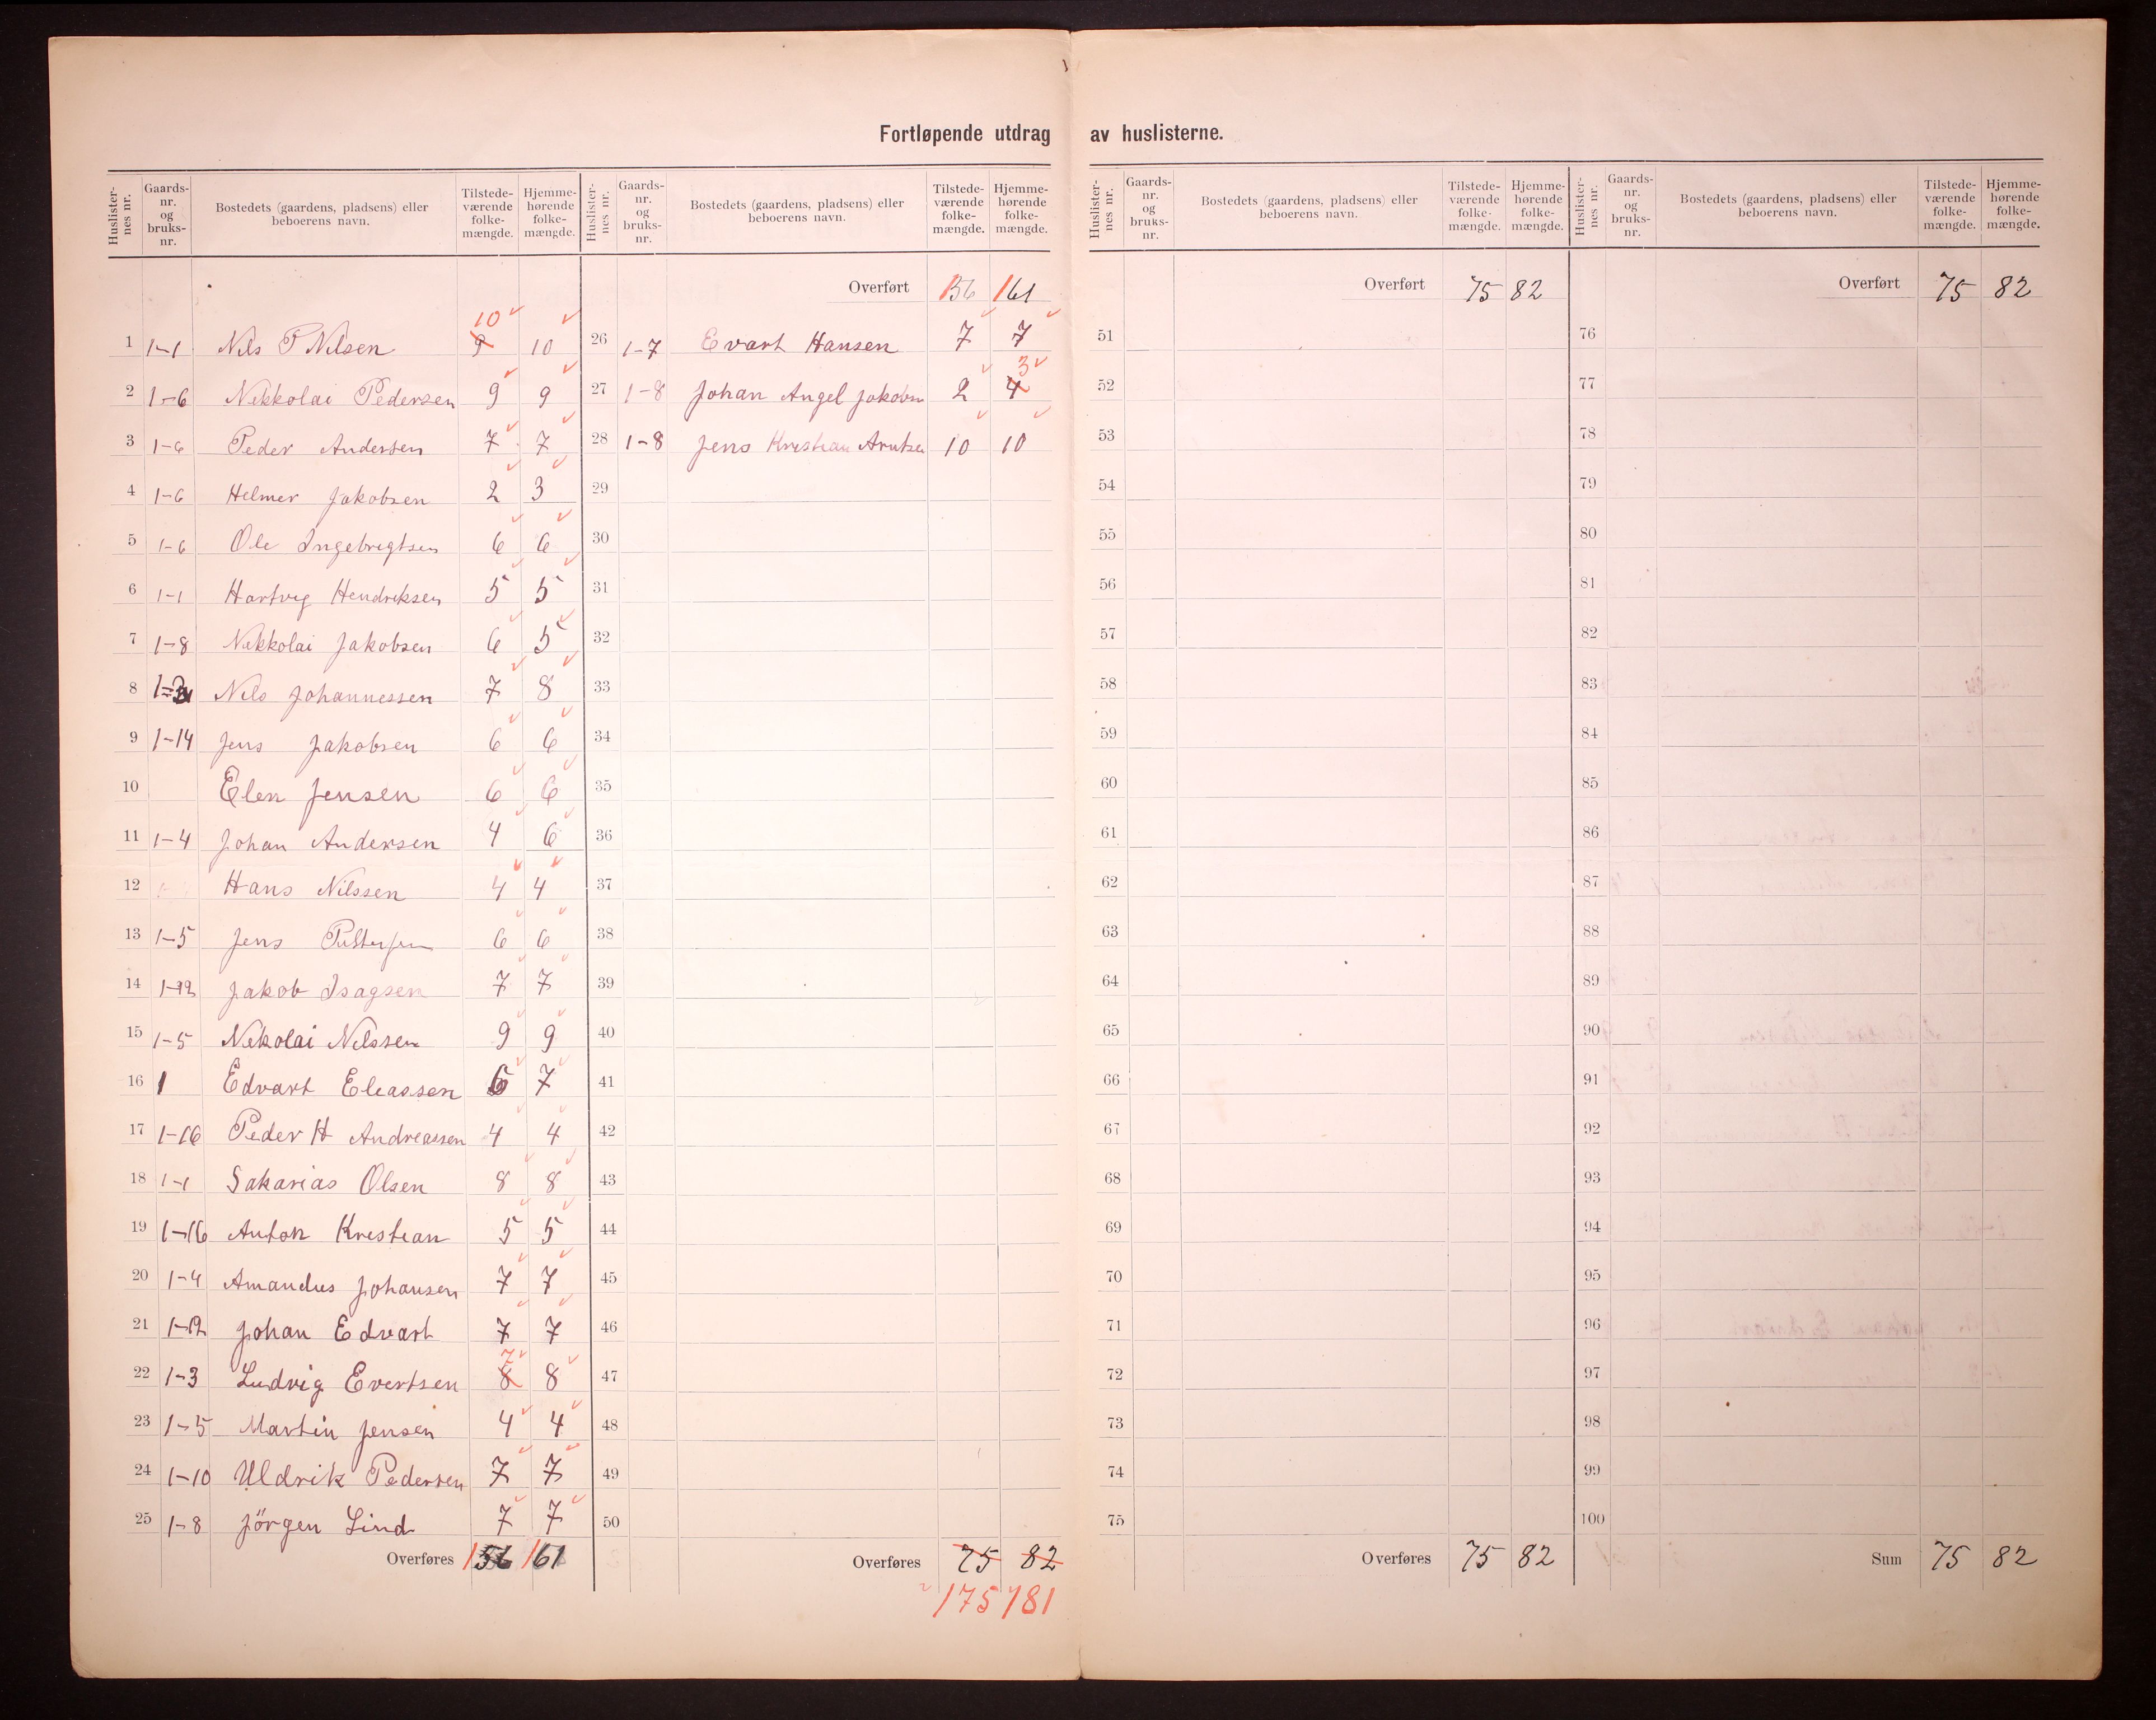 Fortløpende utdrag av huslisterne.
Huslister-nes nr. Gaards-nr. og bruks-nr. Bostedets (gaardens, pladsens) eller beboerens navn. Tilstede-værende folke-mængde. Hjemme-hørende folke-mængde.
1 1-1 Nils P Nilsen 9 10 10
2 1-6 Nikkolai Pedersen 9 9
3 1-6 Peder Andersen 7 7
4 1-6 Helmer Jakobsen 2 3
5 1-6 Ole Ingebrigtsen 6 6
6 1-1 Hartvig Hendriksen 5 5
7 1-8 Nikkolai Jakobsen 6 5
8 Nils Johannessen 7 8
9 1-14 Jens Jakobsen 6 6
10 Elen Jensen 6 6
11 1-4 Johan Andersen 4 6
12 Hans Nilssen 4 4
13 1-5 Jens 6 6
14 1-12 Jakob Isagsen 7 7
15 1-5 Nikolai Nilssen 9 9
16 1 Edvart Eliassen 6 7
17 1-16 Peder H Andreassen 4 4
18 1-1 Sakarias Olsen 8 8
19 1-16 Anton Kristian 5 5
20 1-4 Amandus Johansen 7 7
21 1-12 Johan Edvart 7 7
22 1-3 Ludvig Evertsen 8 7 8
23 1-5 Martin Jensen 4 4
24 1-10 Uldrik Pedersen 7 7
25 1-8 Jörgen Lind 7 7
Overføres 156 161
Huslister-nes nr. Gaards-nr. og bruks-nr. Bostedets (gaardens, pladsens) eller beboerens navn. Tilstede-værende folke-mængde. Hjemme-hørende folke-mængde.
Overført 156 161
26 1-7 Evart Hansen 7 7
27 1-8 Johan Angel Jakobsn 2 4 3
28 1-8 Jens Kristian Arntsen 10 10
29
30
31
32
33
34
35
36
37
38
39
40
41
42
43
44
45
46
47
48
49
50
Overføres 75 82
175 181
Huslister-nes nr. Gaards-nr. og bruks-nr. Bostedets (gaardens, pladsens) eller beboerens navn. Tilstede-værende folke-mængde. Hjemme-hørende folke-mængde.
Overført 75 82
51
52
53
54
55
56
57
58
59
60
61
62
63
64
65
66
67
68
69
70
71
72
73
74
75
Overføres 75 82
Huslister-nes nr. Gaards-nr. og bruks-nr. Bostedets (gaardens, pladsens) eller beboerens navn. Tilstede-værende folke-mængde. Hjemme-hørende folke-mængde.
Overført 75 82
76
77
78
79
80
81
82
83
84
85
86
87
88
89
90
91
92
93
94
95
96
97
98
99
100
Sum 75 82